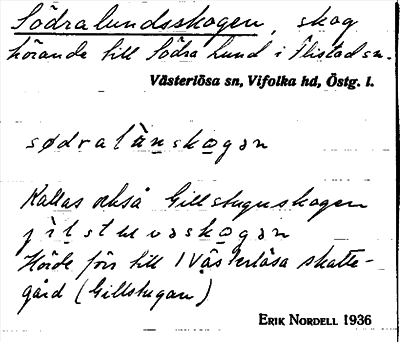 Södralundsskogen, skog
hörande till Södra Lund i Flistad sn.
Västerlösa sn, Vifolka hd, Östg. l.
södralùnskogən
Kallas också Gillstuguskogen
jilstuvaskogən
Hörde förr till 1 Västerlösa skatte-
gård (Gillstugan)
ERIK NORDELL 1936